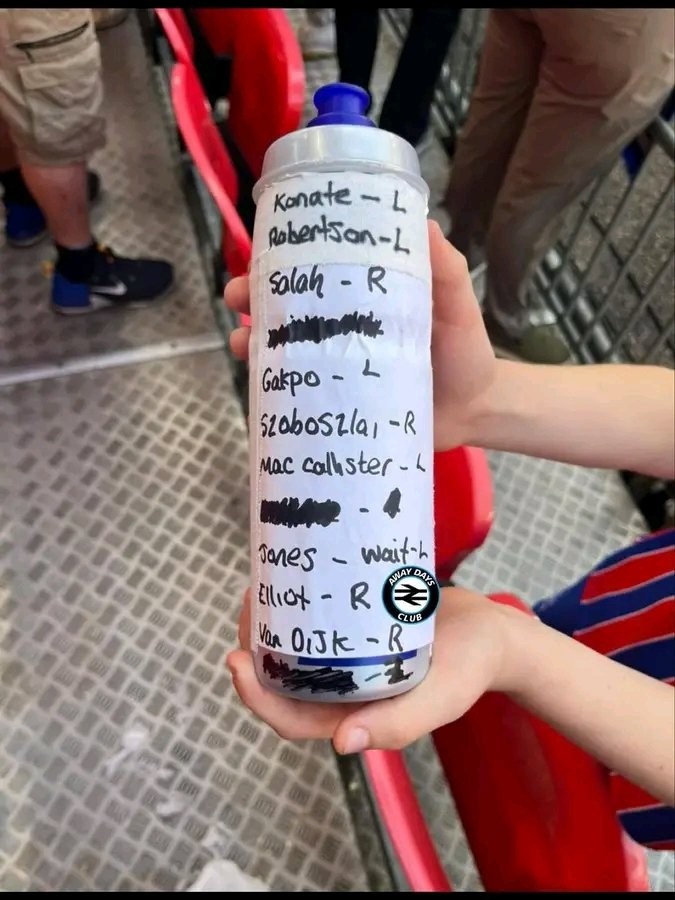 Konate - L
Robertson - L
Salah - R
Gakpo - L
Szoboszlai - R
Mac callister - L
Jones - wait - L
Elliot - R
AWAY DAYS
CLUB
Van DIJK - R